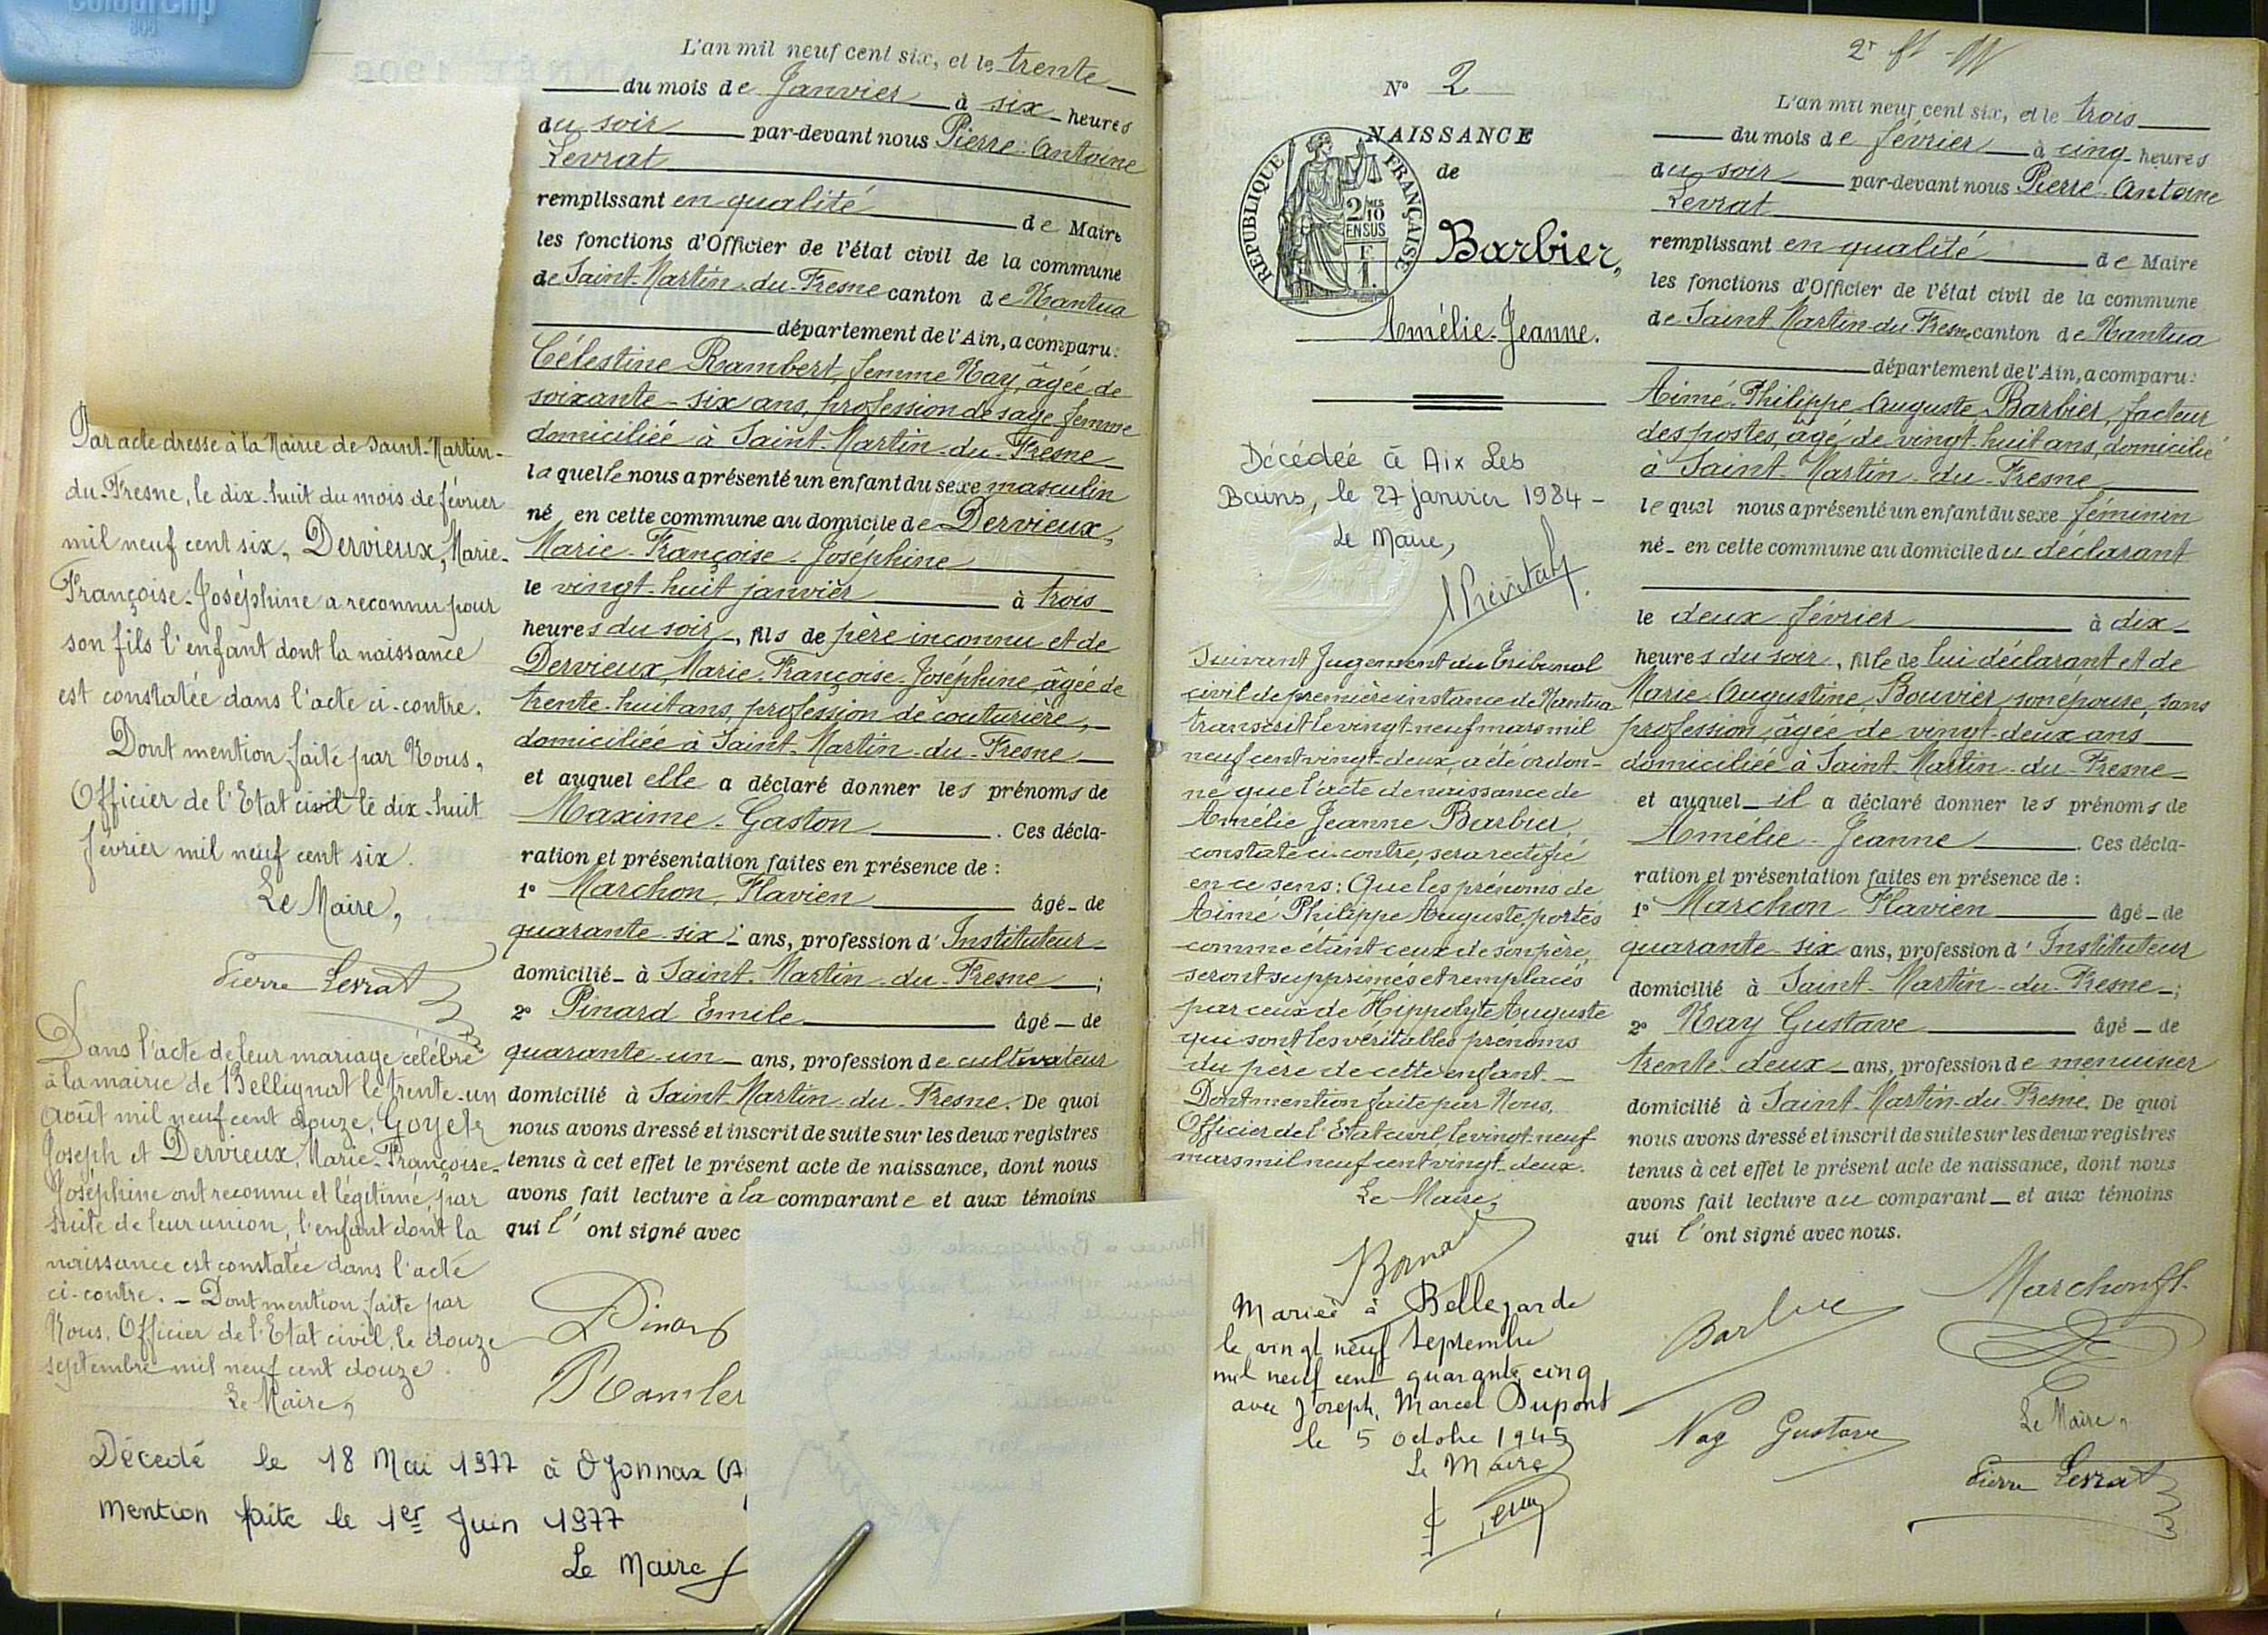 Colourclip
809
L'an mil neuf cent six, et le trente
du mois de Janvier à six heures
du soir par-devant nous Pierre-Antoine
Levrat
remplissant en qualité de Maire
les fonctions d'Officier de l'état civil de la commune
de Saint-Martin-du-Fresne canton de Nantua
département de l'Ain, a comparu:
Célestine Rambert, femme Nay, âgée de
soixante-six ans, profession de sage femme
domiciliée à Saint-Martin-du-Fresne
laquelle nous a présenté un enfant du sexe masculin
né en cette commune au domicile de Dervieux,
Marie-Françoise-Joséphine
le vingt-huit janvier à trois
heures du soir, fils de père inconnu et de
Dervieux, Marie-Françoise-Joséphine, âgée de
trente-huit ans, profession de couturière,
domiciliée à Saint-Martin-du-Fresne
et auquel elle a déclaré donner les prénoms de
Maxime-Gaston. Ces décla-
ration et présentation faites en présence de :
1° Marchon, Flavien âgé de
quarante-six ans, profession d'Instituteur
domicilié à Saint-Martin-du-Fresne ;
2° Pinard Emile âgé de
quarante-un ans, profession de cultivateur
domicilié à Saint-Martin-du-Fresne. De quoi
nous avons dressé et inscrit de suite sur les deux registres
tenus à cet effet le présent acte de naissance, dont nous
avons fait lecture à la comparante et aux témoins
qui l'ont signé avec
Pinard
Ramber
Par acte dressé à la Mairie de Saint-Martin-
du-Fresne, le dix-huit du mois de février
mil neuf cent six, Dervieux, Marie-
Françoise-Joséphine a reconnu pour
son fils l'enfant dont la naissance
est constatée dans l'acte ci-contre.
Dont mention faite par Nous,
Officier de l'Etat civil le dix-huit
février mil neuf cent six.
Le Maire,
Pierre Levrat
Dans l'acte de leur mariage célébré
à la mairie de Bellignat le trente-un
août mil neuf cent douze, Goyetz
Joseph et Dervieux, Marie-Françoise-
Joséphine ont reconnu et légitimé, par
suite de leur union, l'enfant dont la
naissance est constatée dans l'acte
ci-contre. - Dont mention faite par
Nous, Officier de l'Etat civil, le douze
septembre mil neuf cent douze.
Le Maire,
Décédé le 18 Mai 1977 à Oyonnax (A
Mention faite le 1er Juin 1977
Le Maire
2r ft
N° 2
NAISSANCE
de
REPUBLIQUE FRANÇAISE
2/10 MES
EN SUS
F
1.
Barbier,
Amélie-Jeanne.
Décédée à Aix Les
Bains, le 27 janvier 1984 -
Le Maire,
Suivant Jugement du Tribunal
civil de première instance de Nantua
transcrit le vingt-neuf mars mil
neuf cent vingt-deux, a été ordon-
né que l'acte de naissance de
Amélie Jeanne Barbier,
constaté ci-contre, sera rectifié
en ce sens: Que les prénoms de
Aimé Philippe Auguste, portés
comme étant ceux de son père,
seront supprimés et remplacés
par ceux de Hippolyte Auguste
qui sont les véritables prénoms
du père de cette enfant.-
Dont mention faite par Nous,
Officier de l'Etat civil, le vingt-neuf
mars mil neuf cent vingt-deux.
Le Maire,
Mariée à Bellegarde
le vingt neuf Septembre
mil neuf cent quarante cinq
avec Joseph, Marcel Dupont
le 5 octobre 1945
Le Maire
L'an mil neuf cent six, et le trois
du mois de février à cinq heures
du soir par-devant nous Pierre-Antoine
Levrat
remplissant en qualité de Maire
les fonctions d'Officier de l'état civil de la commune
de Saint-Martin-du-Fresne canton de Nantua
département de l'Ain, a comparu:
Aimé-Philippe-Auguste Barbier, facteur
des postes, âgé de vingt-huit ans, domicilié
à Saint-Martin-du-Fresne
lequel nous a présenté un enfant du sexe féminin
né en cette commune au domicile du déclarant
le deux février à dix
heures du soir, fille de lui déclarant et de
Marie-Augustine, Bouvier, son épouse, sans
profession, âgée de vingt-deux ans
domiciliée à Saint-Martin-du-Fresne
et auquel il a déclaré donner les prénoms de
Amélie-Jeanne. Ces décla-
ration et présentation faites en présence de :
1° Marchon Flavien âgé de
quarante-six ans, profession d'Instituteur
domicilié à Saint-Martin-du-Fresne ;
2° Nay Gustave âgé de
trente-deux ans, profession de menuisier
domicilié à Saint-Martin-du-Fresne. De quoi
nous avons dressé et inscrit de suite sur les deux registres
tenus à cet effet le présent acte de naissance, dont nous
avons fait lecture au comparant et aux témoins
qui l'ont signé avec nous.
Marchon ft.
Barbier
Nay Gustave
Le Maire,
Pierre Levrat